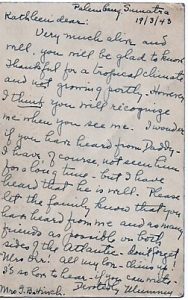 Palembang Sumatra
19/3/43
Kathleen dear:
Very much alive and
well, you will be glad to know
Thankful for a tropical climate
and not growing portly. However
I think you will recognize
me when you see me. I wonder
if you have heard from Daddy -
I have, of course, not seen him
for so long a time - but I have
heard that he is well. Please
let the family know that you
have heard from me and as many
friends as possible on both
sides of the Atlantic - don't forget
all my love - this
is so long to hear - if you can write
Devotedly Mummy